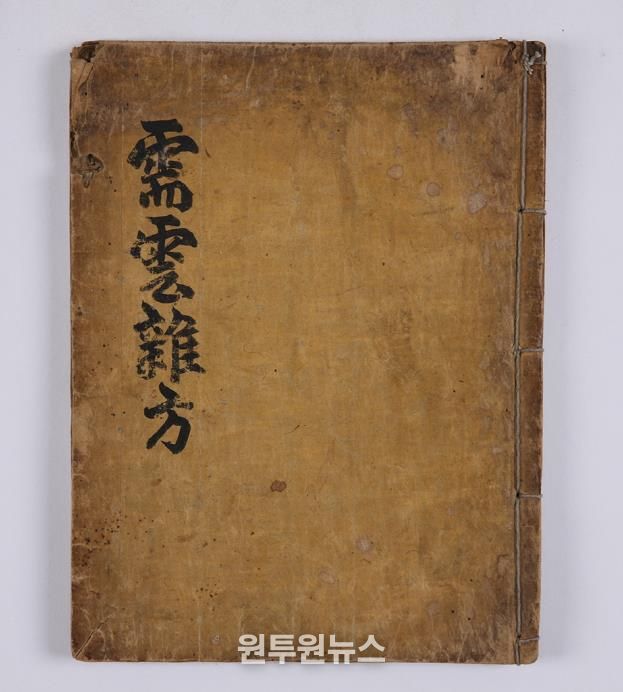 需雲雜方
원투원뉴스